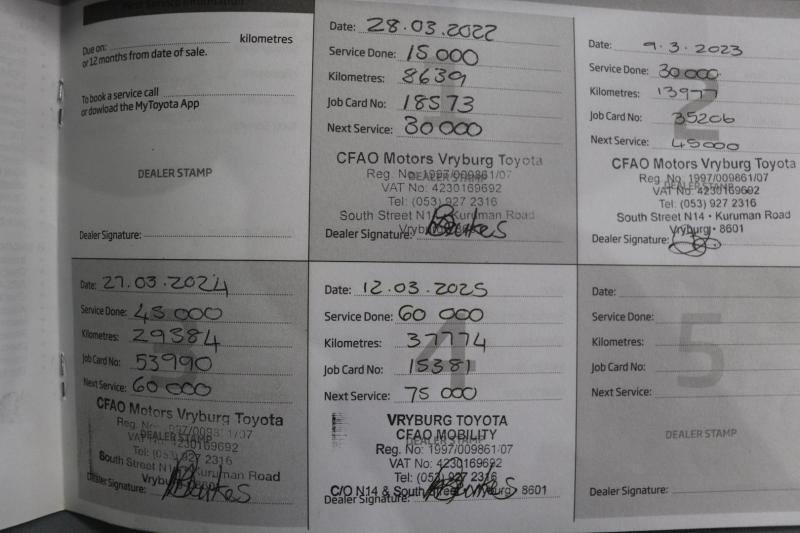 Due on: kilometres
or 12 months from date of sale.
To book a service call
or dowload the MyToyota App
DEALER STAMP
Dealer Signature:
Date: 28.03.2022
Service Done: 15 000
Kilometres: 8639
Job Card No: 18573
Next Service: 30 000
CFAO Motors Vryburg Toyota
Reg. No: 1997/009861/07
DEALER STAMP
VAT No: 4230169692
Tel: (053) 927 2316
South Street N14 Kuruman Road
Dealer Signature:
1
Date: 9.3.2023
Service Done: 30 000
Kilometres: 13977
Job Card No: 35206
Next Service: 45000
CFAO Motors Vryburg Toyota
Reg. No: 1997/009861/07
DEALER STAMP
VAT No: 4230169692
Tel: (053) 927 2316
South Street N14 • Kuruman Road
Vryburg • 8601
Dealer Signature:
2
Date: 27.03.2024
Service Done: 45 000
Kilometres: 29384
Job Card No: 53990
Next Service: 60 000
CFAO Motors Vryburg Toyota
DEALER STAMP
VAT No: 4230169692
Tel: (053) 927 2316
South Street N14 Kuruman Road
Dealer Signature:
Date: 12.03.2025
Service Done: 60 000
Kilometres: 37774
Job Card No: 15381
Next Service: 75 000
VRYBURG TOYOTA
CFAO MOBILITY
DEALER STAMP
Reg. No: 1997/009861/07
VAT No: 4230169692
Tel: (053) 927 2316
C/O N14 & South Street Vryburg 8601
Dealer Signature:
4
Date:
Service Done:
Kilometres:
Job Card No:
Next Service:
5
DEALER STAMP
Dealer Signature: